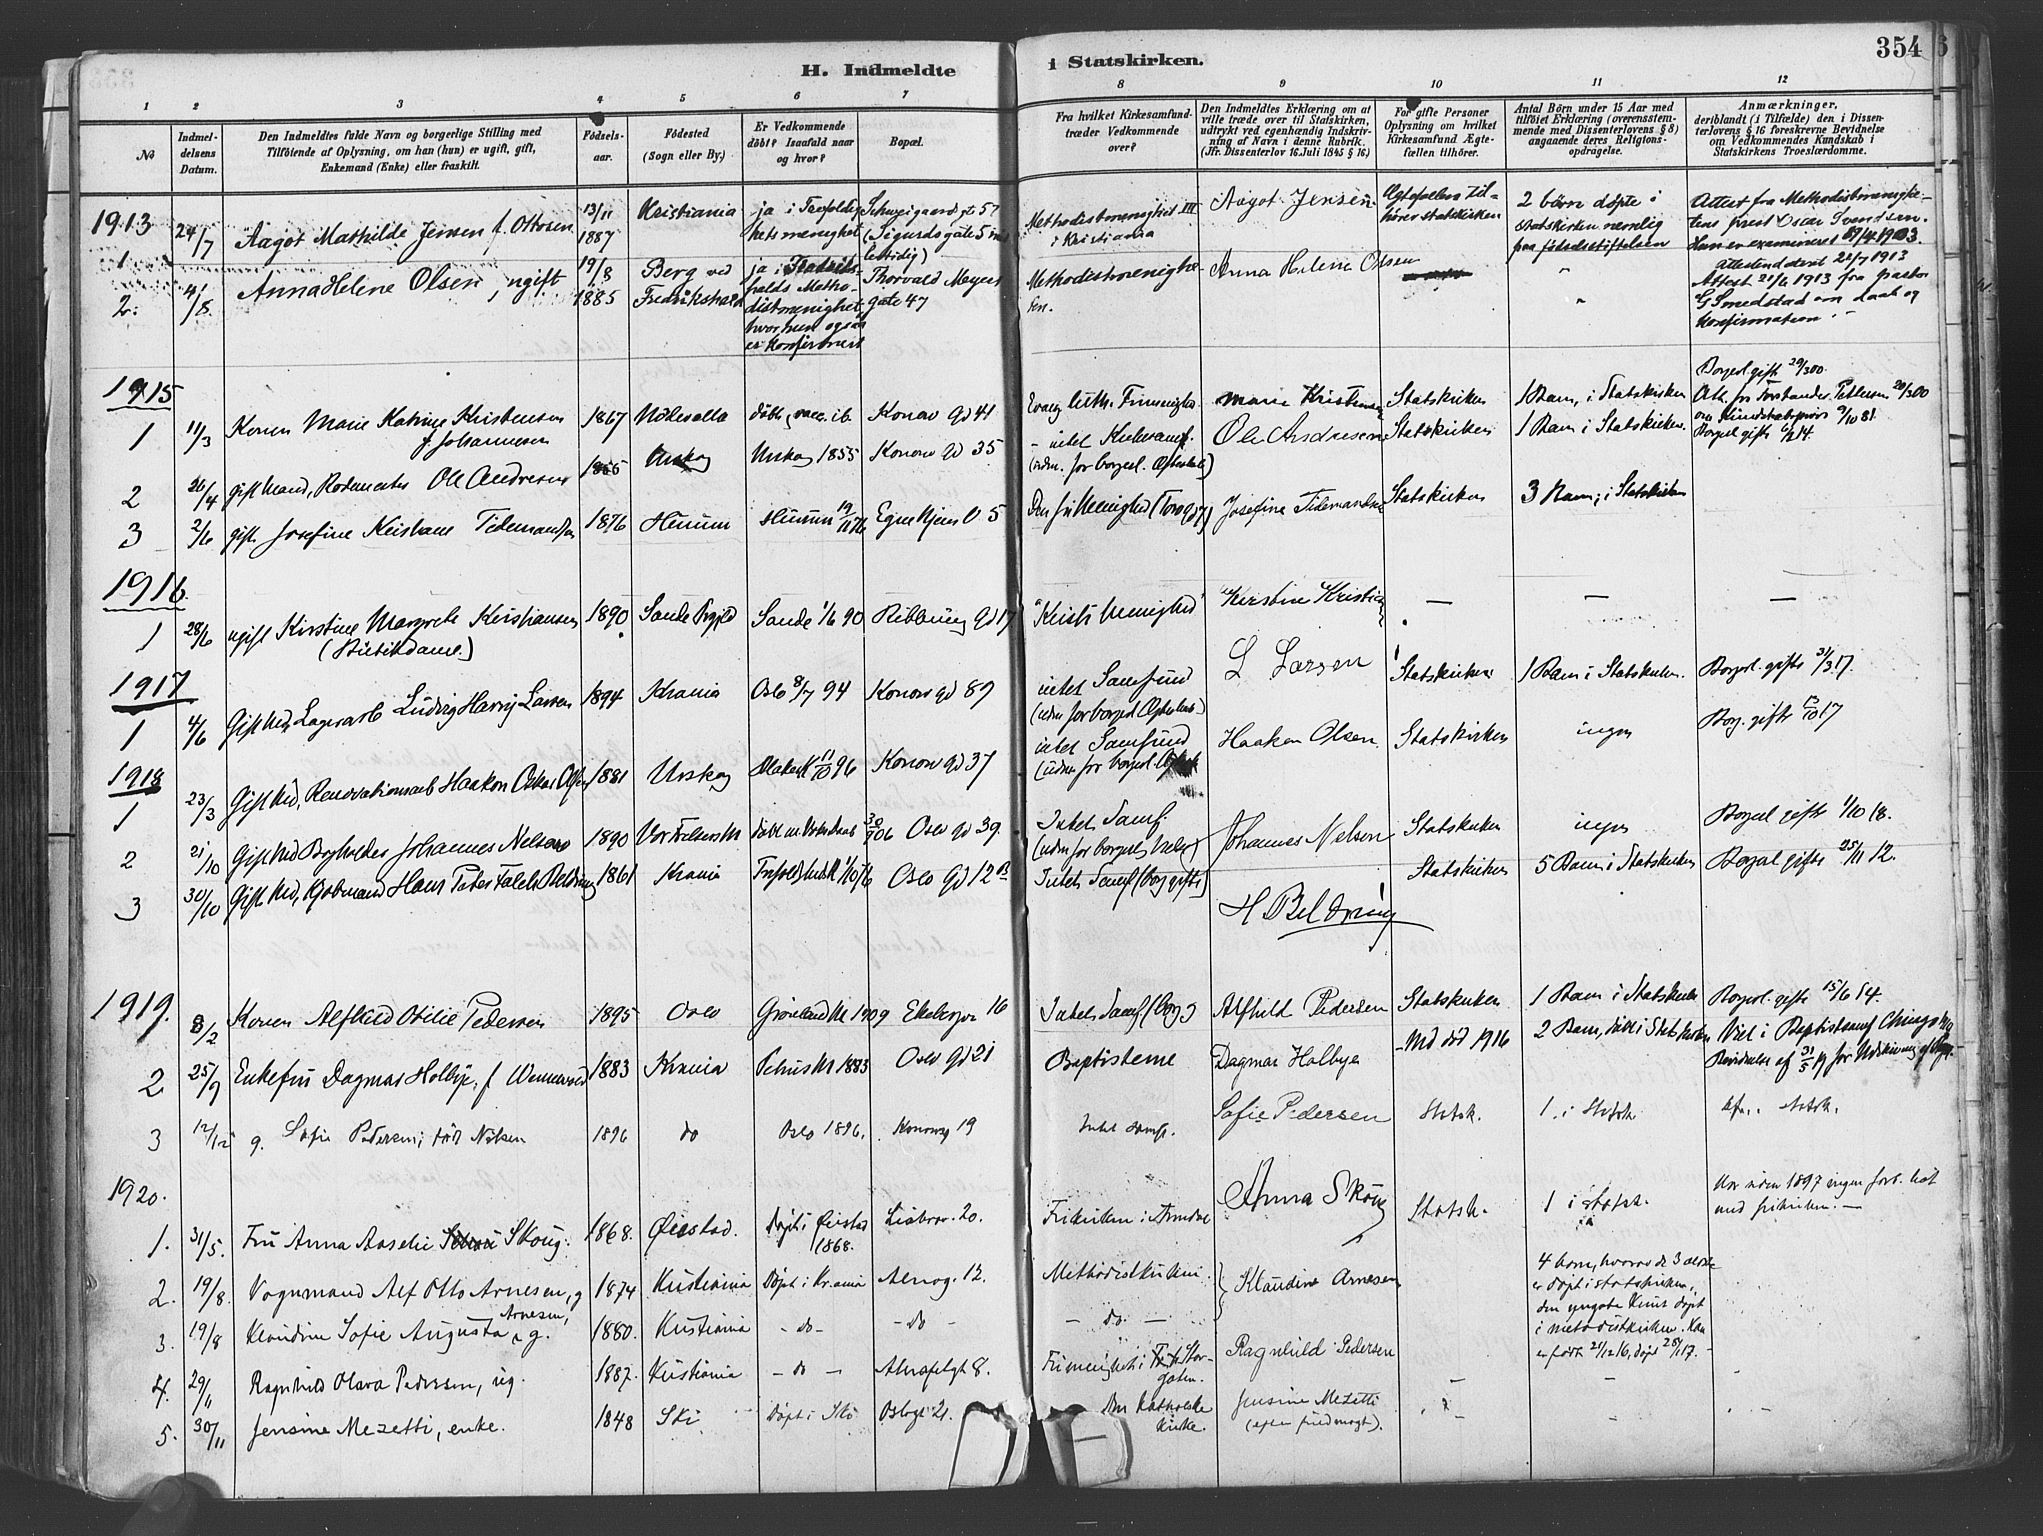 354
H. Indmeldte i Statskirken.
1 2 3 4 5 6 7 8 9 10 11 12
No
Indmel-
delsens
Datum.
Den Indmeldtes fulde Navn og borgerlige Stilling med
Tilføiende af Oplysning, om han (hun) er ugift, gift,
Enkemand (Enke) eller fraskilt.
Fødsels-
aar.
Fødested
(Sogn eller By.)
Er Vedkommende
døbt? Isaafald naar
og hvor?
Bopæl.
Fra hvilket Kirkesamfund
træder Vedkommende
over?
Den Indmeldtes Erklæring om at
ville træde over til Statskirken,
udtrykt ved egenhændig Indskriv-
ning af Navn i denne Rubrik.
(Jfr. Dissenterlov 16. Juli 1845 § 16.)
For gifte Personer
Oplysning om hvilket
Kirkesamfund Ægte-
fællen tilhører.
Antal Børn under 15 Aar med
tilføiet Erklæring (overensstem-
mende med Dissenterlovens § 8)
angaaende deres Religions-
opdragelse.
Anmærkninger,
deriblandt (i Tilfælde) den i Dissen-
terlovens § 16 foreskrevne Bevidnelse
om Vedkommendes Kundskab i
Statskirkens Troeslærdomme.
1913
1 24/7 Aagot Mathilde Jensen f. Ottosen
13/11
1887
Kristiania
ja i Trefoldig-
hetsmenighet
Schweigaardsgt 57
(Sigurdsgate 5
Methodistmenighet III
i Kristiania
Aagot Jensen
Ægtefælens til-
hører statskirken
2 börn døpte i
statskirken nemlig
paa fødselsstiftelsen
Attest fra Methodistmenighe-
tens prest Oscar Svendsen.
Hun er examineret
Attesteret 22/7 1913
2. 4/8. Anna Helene Olsen, ugift
19/8
1885
Berg ved
Fredrikshald
ja i Fredriks-
halds Metho-
distmenighet,
hvor hun også
er konfirmert
Thorvald Meyers
gate 47
Methodistmenighe-
ten.
Anna Helene Olsen
"
"
Attest 21/6 1913 fra pastor
G Smedstad om daab og
Konfirmation
1915
1 11/3 Konen Marie Katrine Kristensen
f. Johannesen
1867 døbt, vacc. ib. Konow Gd 41
Evang luth. Frimenighe
Marie Kristensen Statskirken 1 Barn, i Statskirken
Borgerl gift 29/3 00.
Att. fr Forstander Pettersen 20/3 00
om Kundskabsprøve
2 26/4 gift Mand, Rodemester Ole Andresen
1855 Urskog Urskog 1855 Konow Gd 35
- intet Kirkesamf.
(udm. for borgerl. Ægteskab)
Ole Andresen Statskirken 1 Barn i Statskirken.
Borgerl gift
3 2/6 gift Josefine Kristiane Tidemandsen
1876 Hurum Hurum 19/11 76 Egne Hjem V 5
Den fri Menighed (Torvgd 7) Josefine Tidemandsen Statskirken 3 Barn; i Statskirken
1916
1 28/6 ugift Kirstine Margrete Kristiansen
(Butikdame)
1890 Sande Sande 1/6 90 Ribbung Gd 17
"Krists Menighed" Kirstine Kristian — — —
1917
1 4/6 Gift Md, Lagerarb Ludvig Harry Larsen
1894 Krania Oslo 8/7 94 Konow gd 89
intet Samfund
(udm for borgerl Ægteskab)
L Larsen Statskirken 1 Barn i Statskirken. Borgerl. gift 31/3 17.
1918
1 23/3 Gift Md, Renovationsarb Haakon Oskar Olsen
1881 Urskog 11/10 96 Konow Gd 37
intet Samfund
(udm for borgerl. Ægtesk
Haakon Olsen. Statskirken ingen Borg. gift 17
2 21/10 Gift Md Bogholder Johannes Nelsen
1890 Vor Frelsers M 30/9 06 Oslo gd 39.
Intet Samf.
(udm for borgerl.
Johannes Nelsen Statskirken ingen Borgerl gift 1/10 18.
3 30/10 Gift Md, Kjøbmand Hans Peter Falck Beldring
1861 Krania Oslo Gd 12 B
Intet Samf (borg gift)
H Beldring Statskirken 5 Barn i Statskirken Borgerl gift 25/11 12.
1919.
8/2 Konen Alfhild Otilie Pedersen
1895 Oslo Grønland M 1909 Ekebergv 16
Intet Samf (borg) Alfhild Pedersen Statskirken 1 Barn i Statskirk Borgerl. gift 15/6 14.
2 25/9 Enkefru Dagmar Holbye, f
1883 Krania Petrus M 1883 Oslo Gd 21
Baptisterne Dagmar Holbye - Md død 1916 2 Barn, døbt i Statskirken
Viet i Baptistsamf
Bevidnelse af 31/5 19 for
3 12/12 g. Sofie Pedersen, født Nilsen
1896 do Oslo 1896. Konowsg 19
Intet samf. Sofie Pedersen Statsk. 1 i Statsk
1920.
1. 31/5. Fru Anna Aaselie Skoug.
1868. Øiestad. Døpt i Øiestad
1868.
20.
Frikirken i Arendal Anna Skoug Statsk. 1 i statsk.
Har siden 1897 ingen forb. hat
med frikirken. —
2. 19/8. Vognmand Alf Otto Arnesen, g
1874 Kristiania Døpt i Kr.ania Alnag. 12.
Methodistkirken. Klaudine Arnesen
4 barn, hvorav de 3 ældste
er døpt i statskirken,
den yngste Knut døpt
i metodistkirken. Han
er født 2/12 16, døpt 28/1 17. -
3. 19/8 Klaudine Sofie Augusta Arnesen, g.
1880. Kristiania - do - - do -
- do. -
4. 29/11 Ragnhild Olava Pedersen, ug.
1887. Kristiania - do - Alnafetgt 8.
Frimenighet i Stor-
gaten.
Ragnhild Pedersen - - -
5. 30/11 Jensine Mezetti, enke.
1848 Ski Døpt i Ski Oslogt 21.
Den katolske
kirke.
Jensine Mezetti
(efter fuldmagt).
- - -